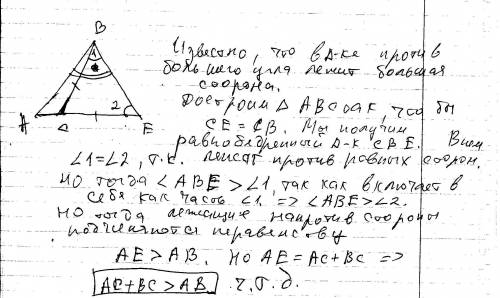 B
1
A
C
2
E
Известно, что в Δ-ке против
большего угла лежит большая
сторона.
Достроим Δ ABC так, что бы
CE = CB. Мы получим
равнобедренный Δ-к CBE. В нем
∠1=∠2, т.к. лежат против равных сторон.
Но тогда ∠ABE > ∠1, так как включает в
себя как часть ∠1 => ∠ABE > ∠2.
Но тогда лежащие напротив стороны
подчиняются неравенству
AE > AB. Но AE = AC + BC =>
AC + BC > AB. ч.т.д.